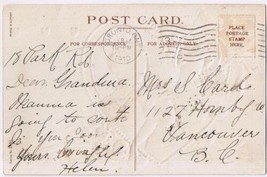 POST CARD.
FOR CORRESPONDENCE
FOR ADDRESS ONLY
PLACE
POSTAGE
STAMP
HERE.
18 Park Rd.
Dear Grandma
Mamma is
going to write
to you soon
Yours lovingly
Helen
Mrs S. Cards
1127 Hornby St
Vancouver
B. C.